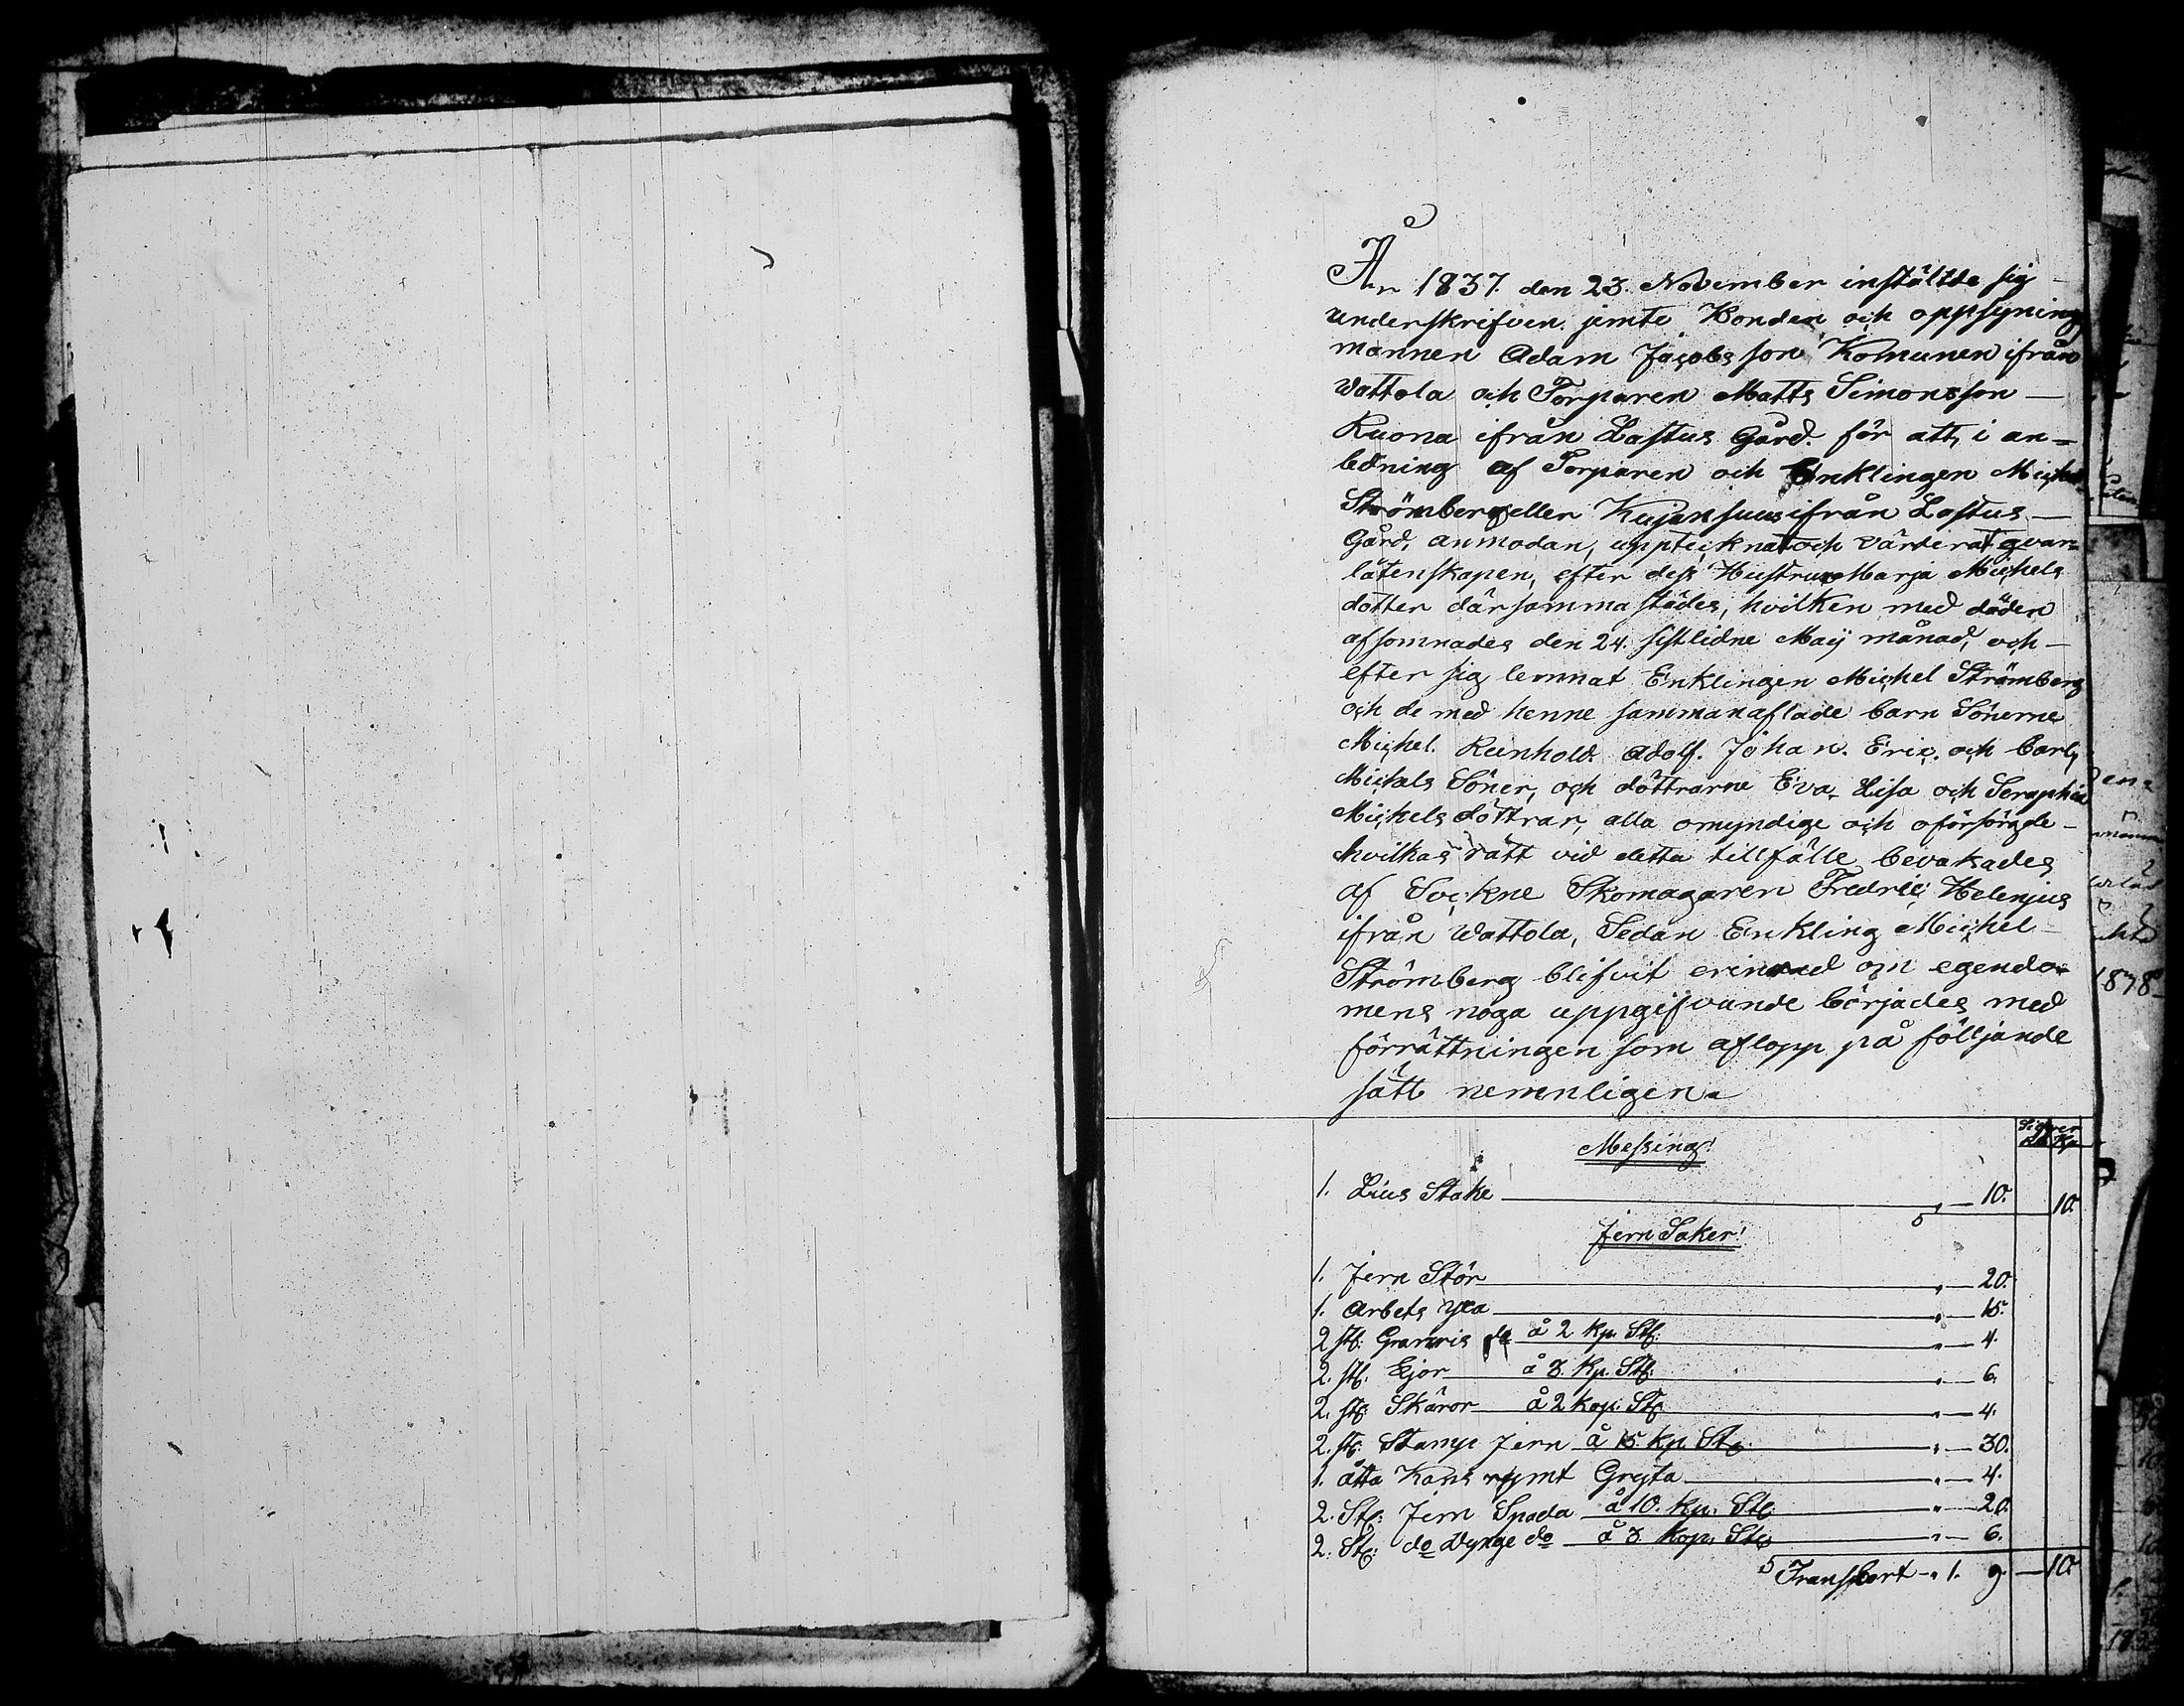 År 1837. den 23. November instältde sig
underskrifven jemte Bonden och oppsyning
mannen Adam Jacobsson Komunen ifrån
Wattola och Torparen Matts Simonsson —
Ruona ifrån Lastus Gård. för att, i an=
ledning af Torparen och Enklingen Michel
Strömberg eller Kujansuu ifrån Lastus —
Gård, anmodan, uppteiknat och värderat qvar=
låtenskapen, efter dess Hustru Marja Michels
dotter därsammastädes, hvilken med döden
afsomnades den 24. sistlidne Maij månad, och —
efter sig lemnat Enklingen Michel Strömberg
och de med henne sammanaflade barn Sönerne
Michel. Reinhold. Adolf. Johan. Eric. och Carl,
Michals Söner, och döttrarne Eva, Lisa och Seraphia
Michels döttrar, alla omyndige och oförsörgde —
hvilkas rätt vid detta tillfälle bevakades
af Sockne Skomagaren Fredric Helenius
ifrån Wattola, Sedan Enkling Michel —
Strömberg blifvit erinrad om egendo=
mens noga uppgifvande börjades med
förrättningen som aflopp på följande
sätt nemnligen.
Silver
Rub Kp
Messing!
1. Lius Stake — " — 10. 10.
Jern Saker!
1. Jern Stör — " — 20.
1. Arbets yxa — " — 15.
2 st: Granris do å 2 kp. St: — " — 4.
2. st: Ljor — å 3. Kp. St: — " — 6.
2. st: Skäror — å 2 kop. St: — " — 4.
2. st: Stamp Jern å 15. kp. St: — " — 30.
1. åtta Kans rymt Gryta — " — 4.
2. St: Jern Spada å 10. Kp. St: — " — 20.
2. St: do Dynge do — å 3 Kop. St: — " — 6.
Transport — " 1. 9. — 10.